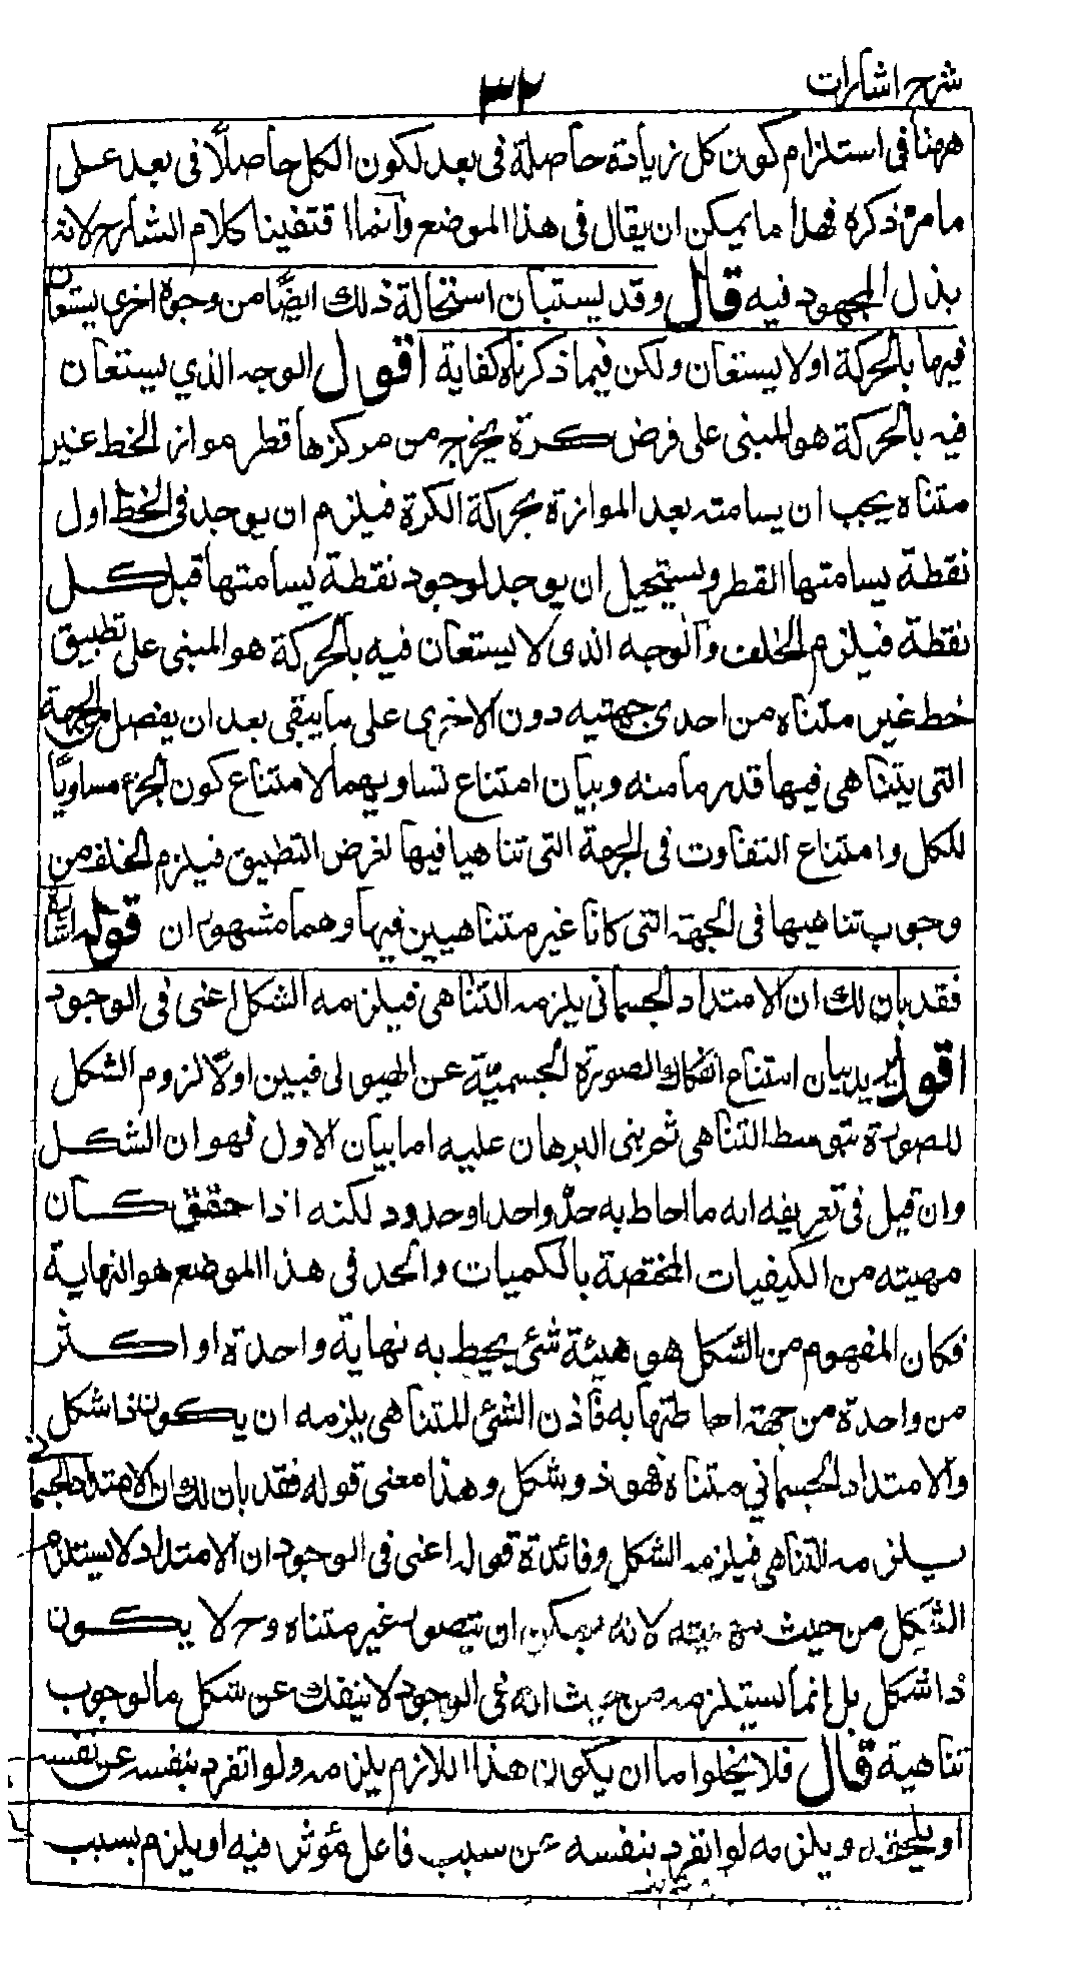 شرح اشارات
٣٢
ههنا فى استلزام كون كل زيادة حاصلة فى بعد لكون الكل حاصلًا فى بعد على
ما مر ذكره فهذا ما يمكن ان يقال فى هذا الموضع وانما اقتفينا كلام الشارح لانه
بذل المجهود فيه قال وقد يستبان استحالة ذلك ايضًا من وجوه اخرى يستعان
فيها بالحركة اولا يستعان ولكن فيما ذكرناه كفاية اقول الوجه الذي يستعان
فيه بالحركة هو المبنى على فرض كرة يخرج من مركزها قطر مواز لخط غير
متناه يجب ان يسامته بعد الموازة بحركة الكرة فيلزم ان يوجد فى الخط اول
نقطة يسامتها القطر ويستحيل ان يوجد لوجود نقطة يسامتها قبل كل
نقطة فيلزم الخلف والوجه الذى لا يستعان فيه بالحركة هو المبنى على تطبيق
خط غير متناه من احدى جهتيه دون الاخرى على ما يبقى بعد ان يفصل من الجهة
التى يتناهى فيها قدر ما منه وبيان امتناع تساويهما لامتناع كون الجزء مساويًا
للكل وامتناع التفاوت فى الجهة التى تناهيا فيها لفرض التطبيق فيلزم الخلف من
وجوب تناهيها فى الجهة التى كانا غير متناهيين فيها وهما مشهوران قوله اشارة
فقد بان لك ان الامتداد الجسمانى يلزمه التناهى فيلزمه الشكل اعنى فى الوجود
اقول يريد بيان امتناع انفكاك الصورة الجسميّة عن الهيولى فبين اولًا لزوم الشكل
للصورة بتوسط التناهى ثم بنى البرهان عليه اما بيان الاول فهو ان الشكل
وان قيل فى تعريفه انه ما احاط به حدّ واحد او حدود لكنه اذا حقق كان
مهيته من الكيفيات المختصة بالكميات والحد فى هذا الموضع هو النهاية
فكان المفهوم من الشكل هو هيئة شئ يحيط به نهاية واحدة او اكثر
من واحدة من جهة احاطتها به فاذن الشئ المتناهى يلزمه ان يكون ذا شكل
والامتداد الجسماني متناه فهو ذو شكل وهذا معنى قوله فقد بان لك ان الامتداد الجسمانى
يلزمه التناهى فيلزمه الشكل وفائدة قوله اعنى فى الوجود ان الامتداد لا يستلزم
الشكل من حيث مهيته لانه يمكن ان يتصور غير متناه وح لا يكون
ذا شكل بل انما يستلزمه من حيث انه فى الوجود لا ينفك عن شكل ما لوجوب
تناهيه قال فلا يخلوا ما ان يكون هذا اللازم يلزمه ولو انفرد بنفسه عن نفسه
او يلحقه ويلزمه لو انفرد بنفسه عن سبب فاعل مؤثر فيه او يلزم بسبب